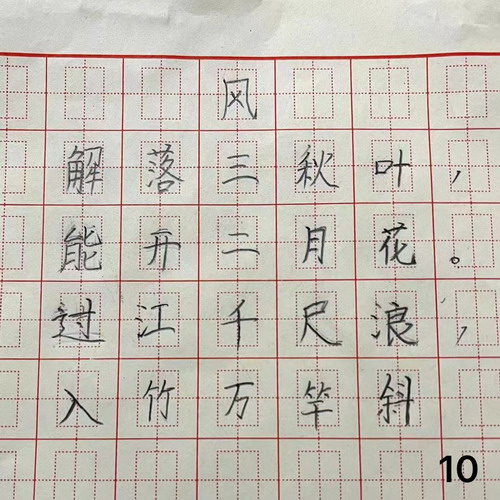 风
解落三秋叶，
能开二月花。
过江千尺浪，
入竹万竿斜
10